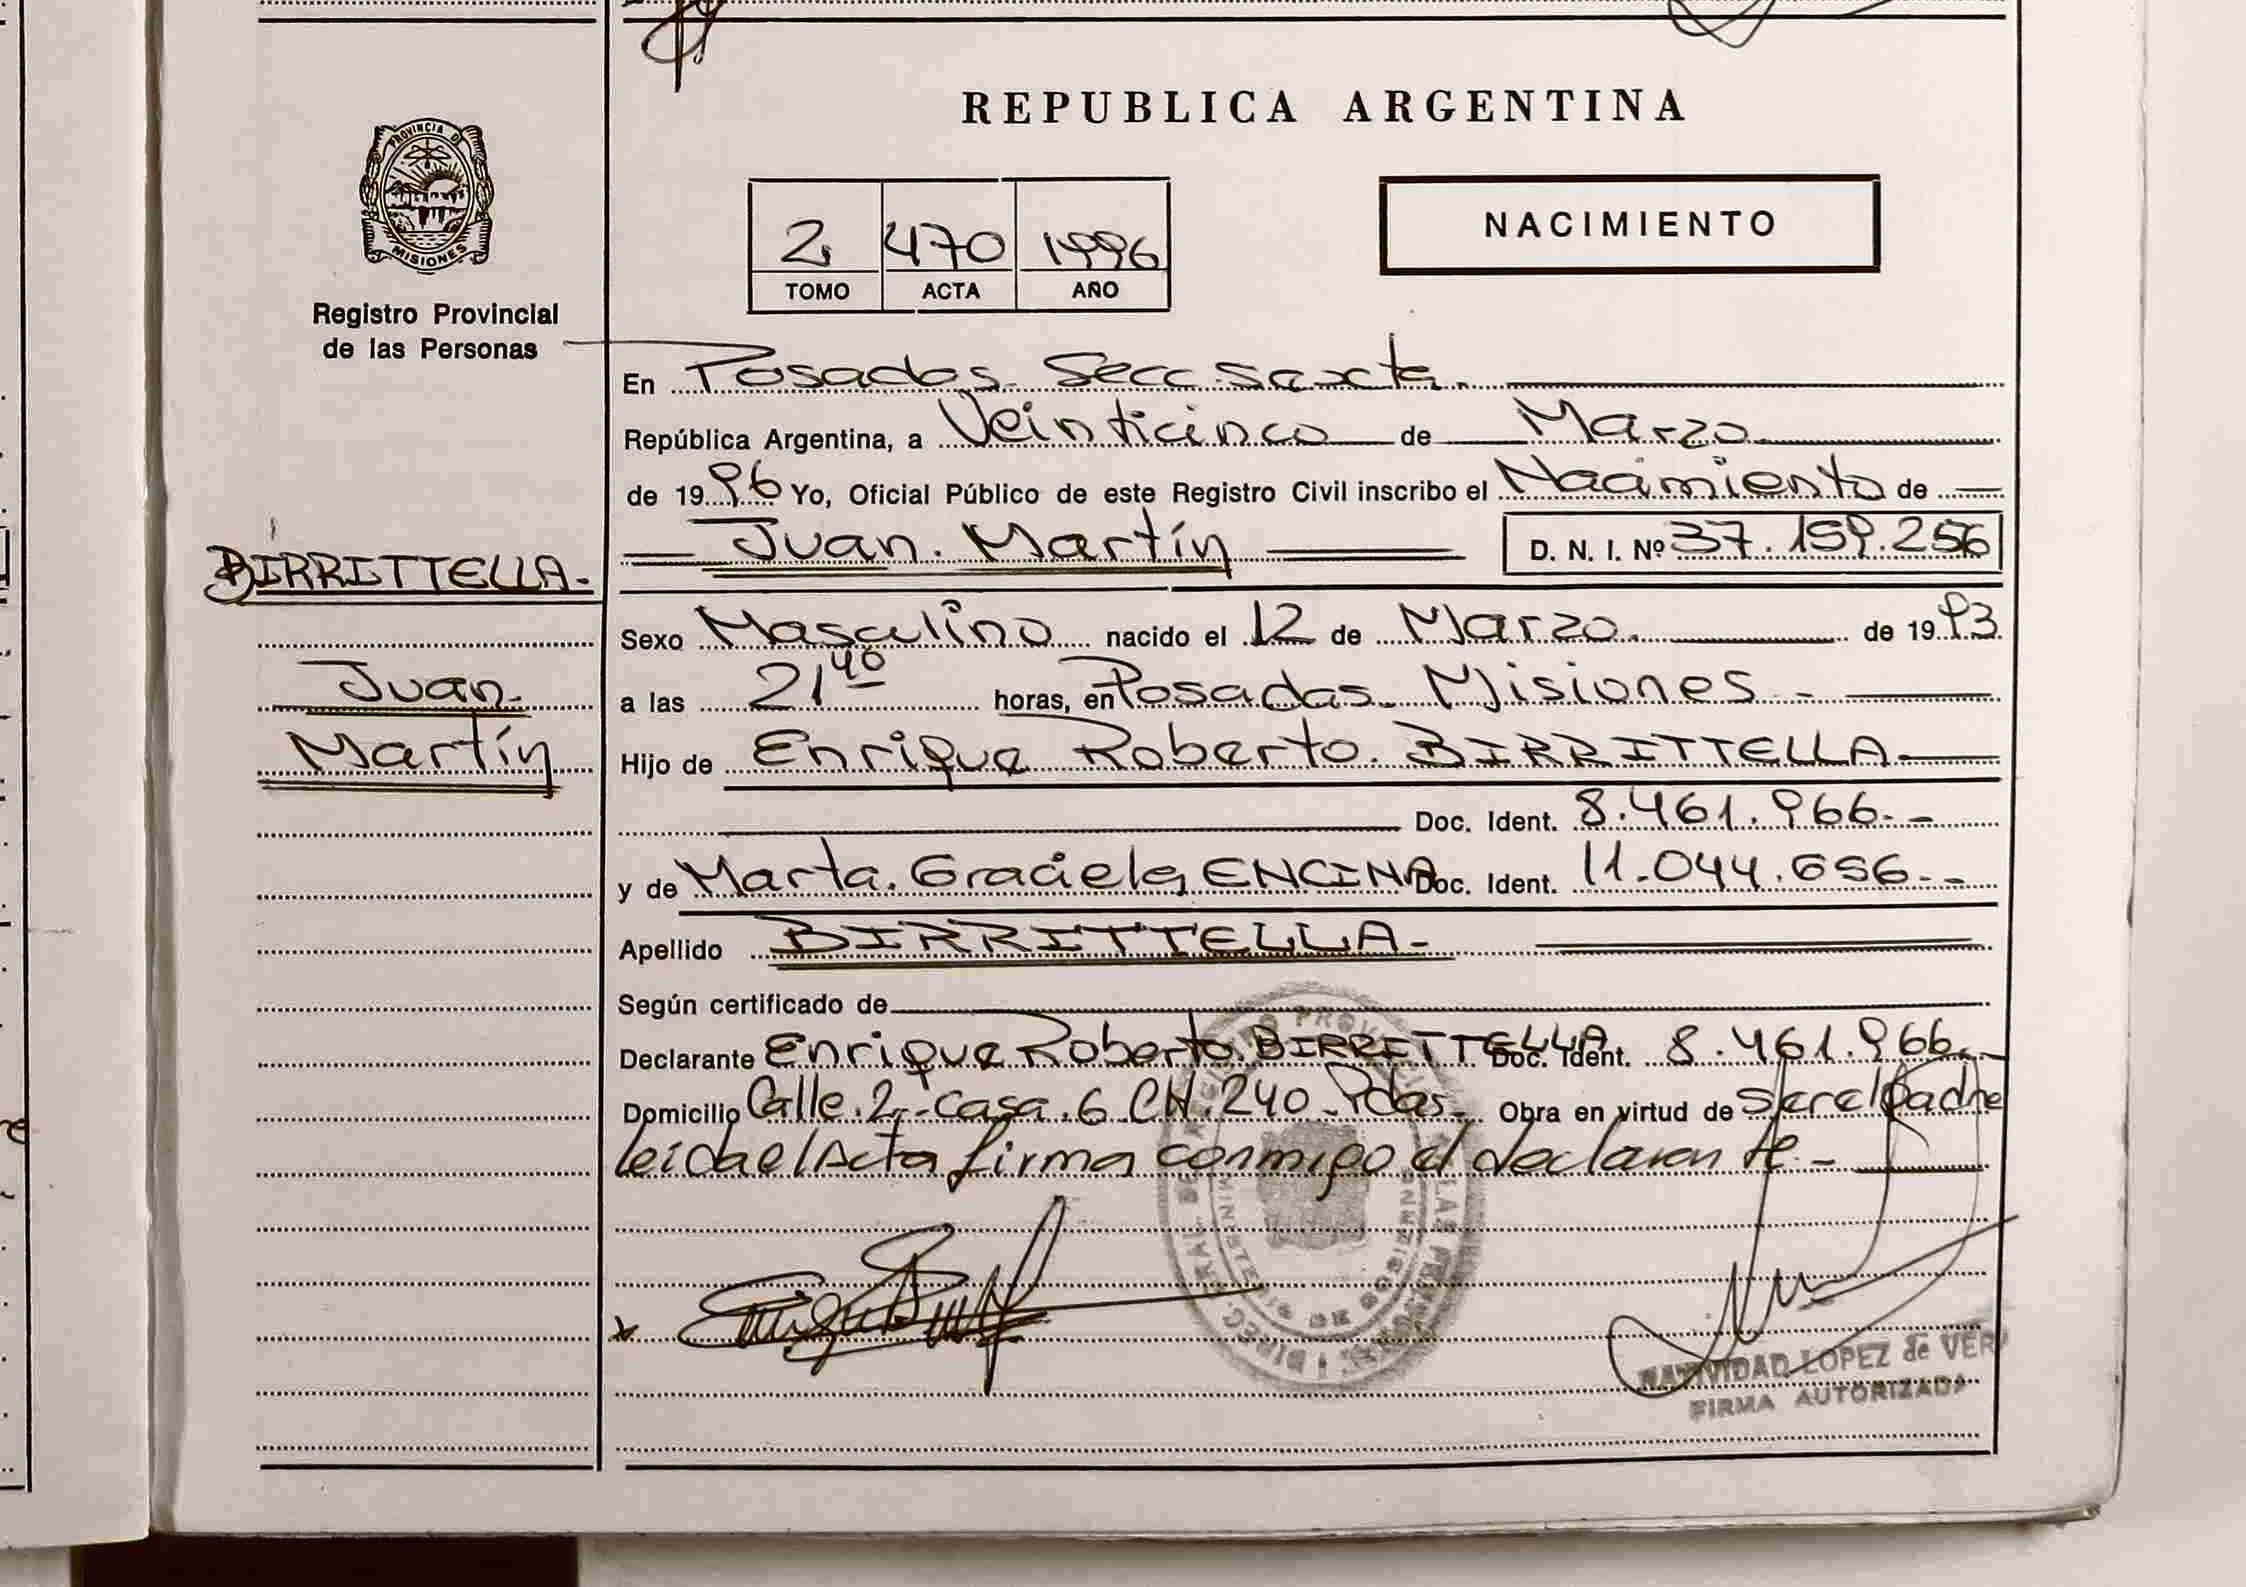 REPUBLICA ARGENTINA
PROVINCIA DE
MISIONES
Registro Provincial
de las Personas
2 470 1996
TOMO ACTA AÑO
NACIMIENTO
En Posadas Secc. Sexta.
República Argentina, a Veinticinco de Marzo
de 1996 Yo, Oficial Público de este Registro Civil inscribo el Nacimiento de
BIRRITTELLA.
Juan Martín D. N. I. Nº 37.159.256
Sexo Masculino nacido el 12 de Marzo. de 1993
Juan
Martín
a las 21 40 horas, en Posadas Misiones -
Hijo de Enrique Roberto BIRRITTELLA
Doc. Ident. 8.461.966.-
y de Marta Graciela ENCINA Doc. Ident. 11.044.656.-
Apellido BIRRITTELLA-
Según certificado de
Declarante Enrique Roberto BIRRITTELLA Doc. Ident. 8.461.966.-
Domicilio Calle 2 - Casa 6 CH. 240 - Pdas. Obra en virtud de ser el Padre
leída el Acta firma conmigo el declarante -
NATIVIDAD LOPEZ de
FIRMA AUTORIZADA